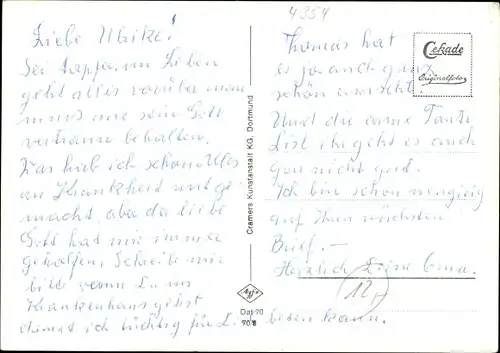 4354
Liebe Ulrike!
Sei tapfer, im Leben
geht alles vorüber man
muss nur sein Gott
vertrauen behalten.
Was hab ich schon Alles
an Krankheit mitge
macht, aber der liebe
Gott hat mir immer
geholfen, Schreibe mir
bitte wenn Du ins
Krankenhaus gehst
damit ich tüchtig für Dich beten kann.
Thomas hat
es ja auch ganz
schön erwischt.
Und die arme Tante
List ihr geht es auch
gar nicht gut.
Ich bin schon neugierig
auf Ihren nächsten
Brief. —
Herzlich Deine Oma.
12,-
Cekade
Originalfoto
Cramers Kunstanstalt KG, Dortmund
Agfa
Dat 70
70 B